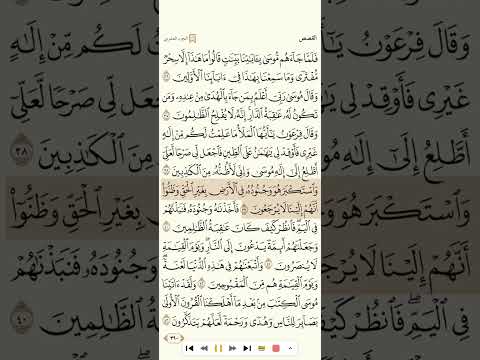 القصص
الجزء العشرون
فَلَمَّا جَآءَهُم مُّوسَىٰ بِـَٔايَٰتِنَا بَيِّنَٰتٍ قَالُوا۟ مَا هَٰذَآ إِلَّا سِحْرٌ
مُّفْتَرًى وَمَا سَمِعْنَا بِهَٰذَا فِىٓ ءَابَآئِنَا ٱلْأَوَّلِينَ ٣٦
وَقَالَ مُوسَىٰ رَبِّىٓ أَعْلَمُ بِمَن جَآءَ بِٱلْهُدَىٰ مِنْ عِندِهِۦ وَمَن
تَكُونُ لَهُۥ عَٰقِبَةُ ٱلدَّارِ إِنَّهُۥ لَا يُفْلِحُ ٱلظَّٰلِمُونَ ٣٧
وَقَالَ فِرْعَوْنُ يَٰٓأَيُّهَا ٱلْمَلَأُ مَا عَلِمْتُ لَكُم مِّنْ إِلَٰهٍ
غَيْرِى فَأَوْقِدْ لِى يَٰهَٰمَٰنُ عَلَى ٱلطِّينِ فَٱجْعَل لِّى صَرْحًا لَّعَلِّىٓ
أَطَّلِعُ إِلَىٰٓ إِلَٰهِ مُوسَىٰ وَإِنِّى لَأَظُنُّهُۥ مِنَ ٱلْكَٰذِبِينَ ٣٨
وَٱسْتَكْبَرَ هُوَ وَجُنُودُهُۥ فِى ٱلْأَرْضِ بِغَيْرِ ٱلْحَقِّ وَظَنُّوٓا۟
أَنَّهُمْ إِلَيْنَا لَا يُرْجَعُونَ ٣٩ فَأَخَذْنَٰهُ وَجُنُودَهُۥ فَنَبَذْنَٰهُمْ
فِى ٱلْيَمِّ فَٱنظُرْ كَيْفَ كَانَ عَٰقِبَةُ ٱلظَّٰلِمِينَ ٤٠
وَجَعَلْنَٰهُمْ أَئِمَّةً يَدْعُونَ إِلَى ٱلنَّارِ وَيَوْمَ ٱلْقِيَٰمَةِ
لَا يُنصَرُونَ ٤١ وَأَتْبَعْنَٰهُمْ فِى هَٰذِهِ ٱلدُّنْيَا لَعْنَةً
وَيَوْمَ ٱلْقِيَٰمَةِ هُم مِّنَ ٱلْمَقْبُوحِينَ ٤٢ وَلَقَدْ ءَاتَيْنَا
مُوسَى ٱلْكِتَٰبَ مِنۢ بَعْدِ مَآ أَهْلَكْنَا ٱلْقُرُونَ ٱلْأُولَىٰ
بَصَآئِرَ لِلنَّاسِ وَهُدًى وَرَحْمَةً لَّعَلَّهُمْ يَتَذَكَّرُونَ ٤٣
٣٩٠